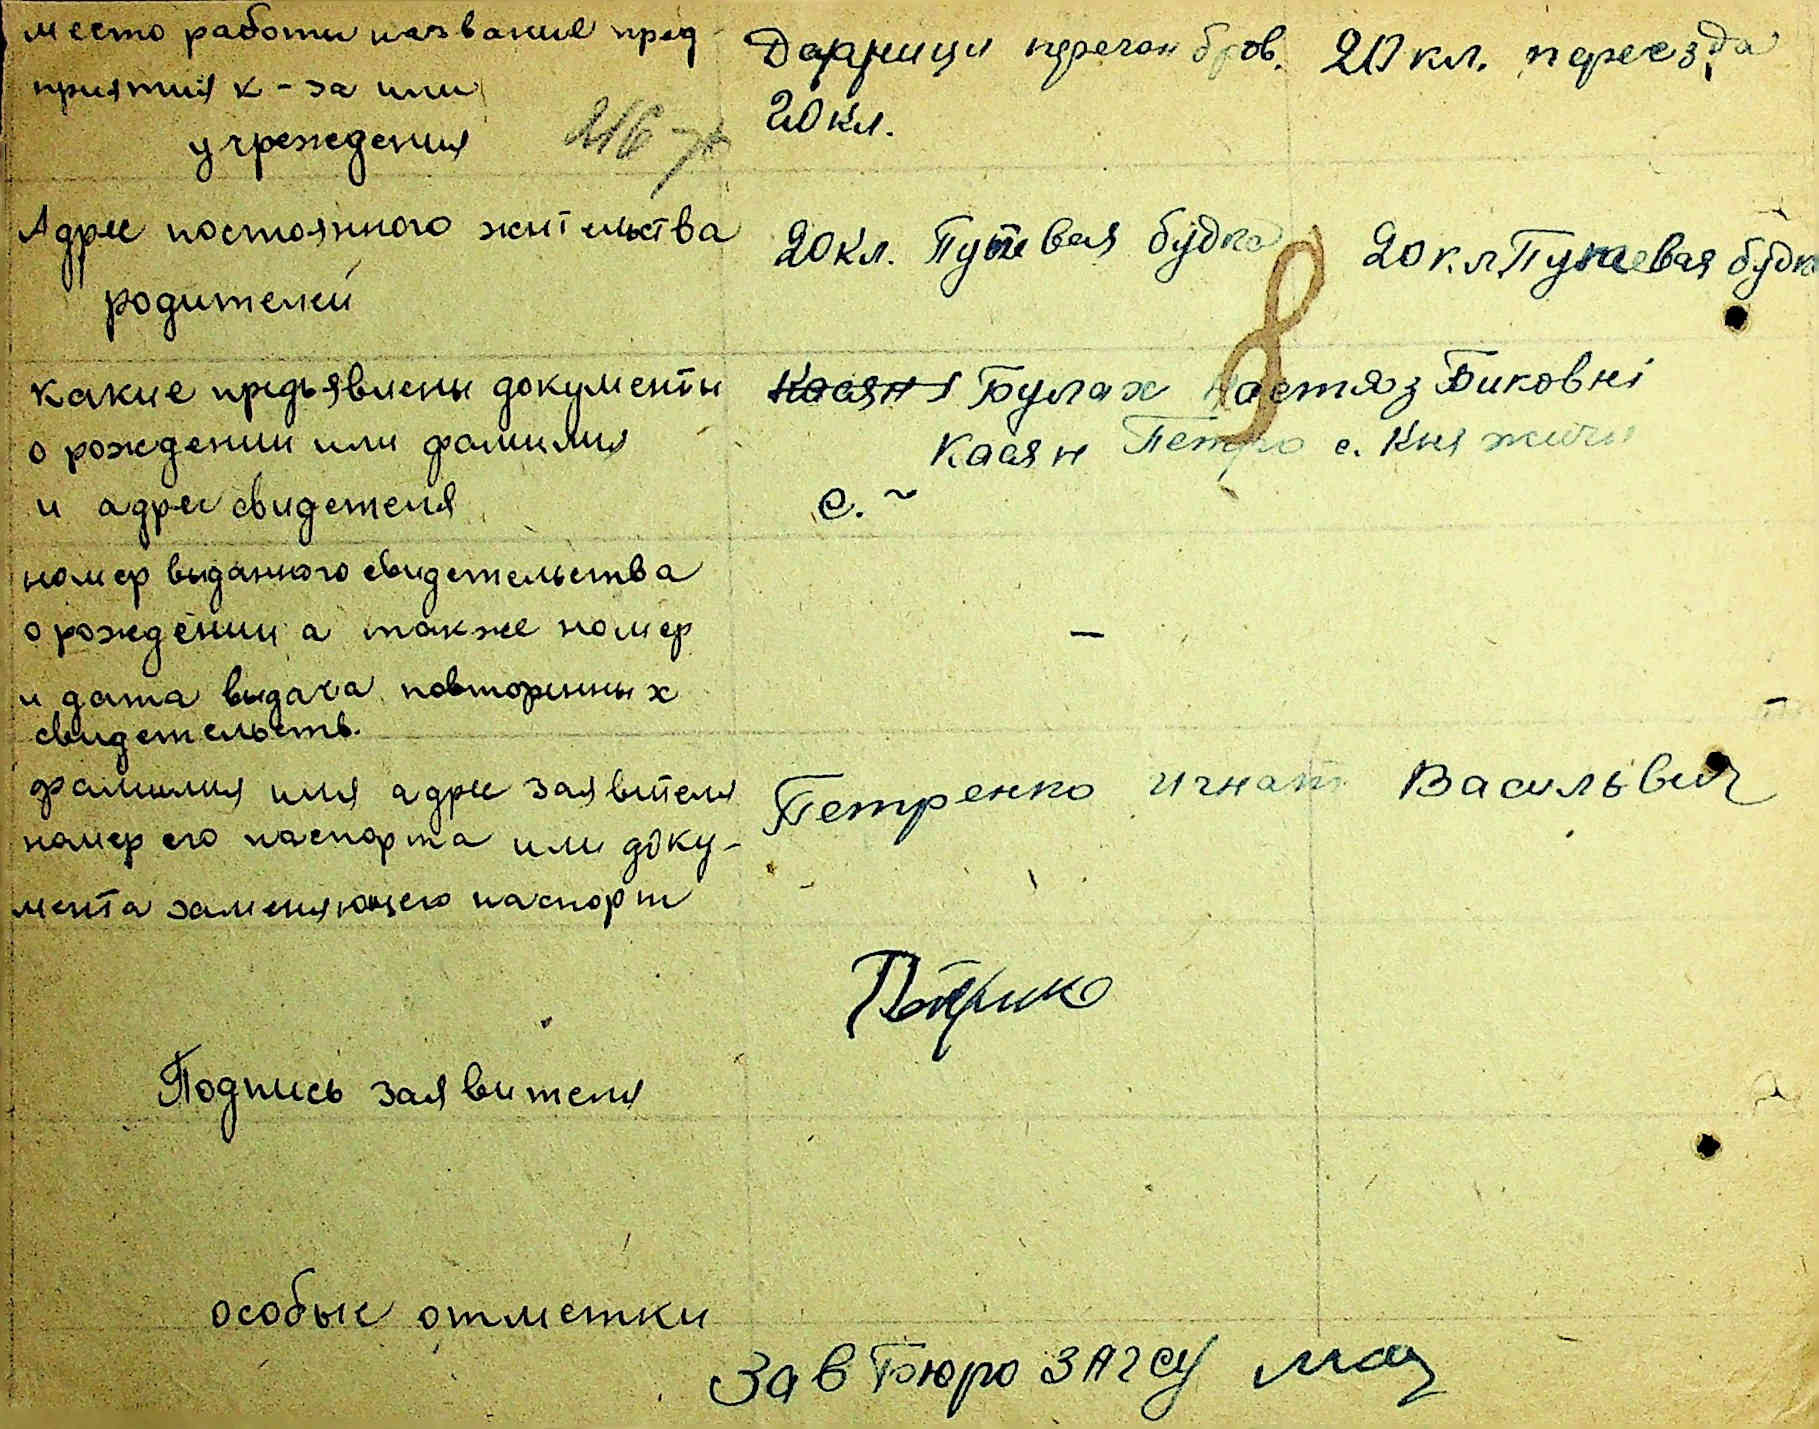 место работы название пред
приятия к-за или
учреждения
Дарници перегон бров. 20 кл. переезда
20 кл.
216
Адрес постоянного жительства
родителей
20 кл. Путевая будка
20 кл Путевая будк
какие предъявлены документы
о рождении или фамилия
и адрес свидетеля
Касян Булах Настя з Биковні
Касян Петро с. Княжичи
с. ~
номер выданного свидетельства
о рождении а также номер
и дата выдача повторенных
свидетельств.
–
фамилия имя адрес заявителя
номер его паспорта или доку-
мента заменяющего паспорт
Петренко Игнат Васильвич
Подпись заявителя
особые отметки
Зав Бюро ЗАГСУ
8